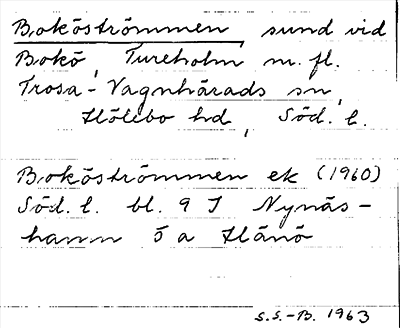 Bokösträmmen, sund vid
Bokö, Tureholm m. fl.
Trosa-Vagnhärads sn,
Hölebo hd, Söd. l.
Bokösträmmen ek (1960)
Söd. l. bl. 9 I Nynäs-
hamn 5 a Hänö
S.S.-B. 1963